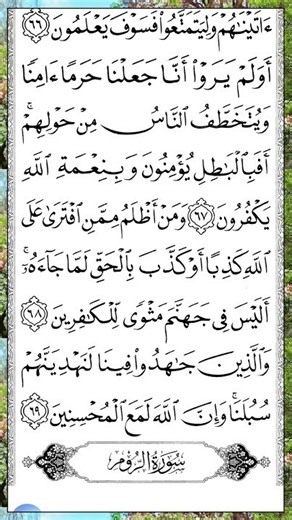 ءَاتَيْنَٰهُمْ وَلِيَتَمَتَّعُوا۟ فَسَوْفَ يَعْلَمُونَ ٦٦
أَوَلَمْ يَرَوْا۟ أَنَّا جَعَلْنَا حَرَمًا ءَامِنًا
وَيُتَخَطَّفُ ٱلنَّاسُ مِنْ حَوْلِهِمْ ۚ
أَفَبِٱلْبَٰطِلِ يُؤْمِنُونَ وَبِنِعْمَةِ ٱللَّهِ
يَكْفُرُونَ ٦٧ وَمَنْ أَظْلَمُ مِمَّنِ ٱفْتَرَىٰ عَلَى
ٱللَّهِ كَذِبًا أَوْ كَذَّبَ بِٱلْحَقِّ لَمَّا جَآءَهُۥٓ ۚ
أَلَيْسَ فِى جَهَنَّمَ مَثْوًى لِّلْكَٰفِرِينَ ٦٨
وَٱلَّذِينَ جَٰهَدُوا۟ فِينَا لَنَهْدِيَنَّهُمْ
سُبُلَنَا ۚ وَإِنَّ ٱللَّهَ لَمَعَ ٱلْمُحْسِنِينَ ٦٩
سُورَةُ الرُّومِ